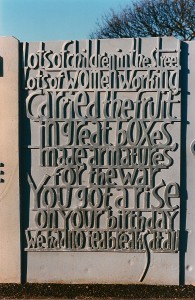 Lots of children in the street
Lots of women working
Carried the fruit
in great boxes
made armatures
for the war
You got a rise
on your birthday
We had no teabreaks at all